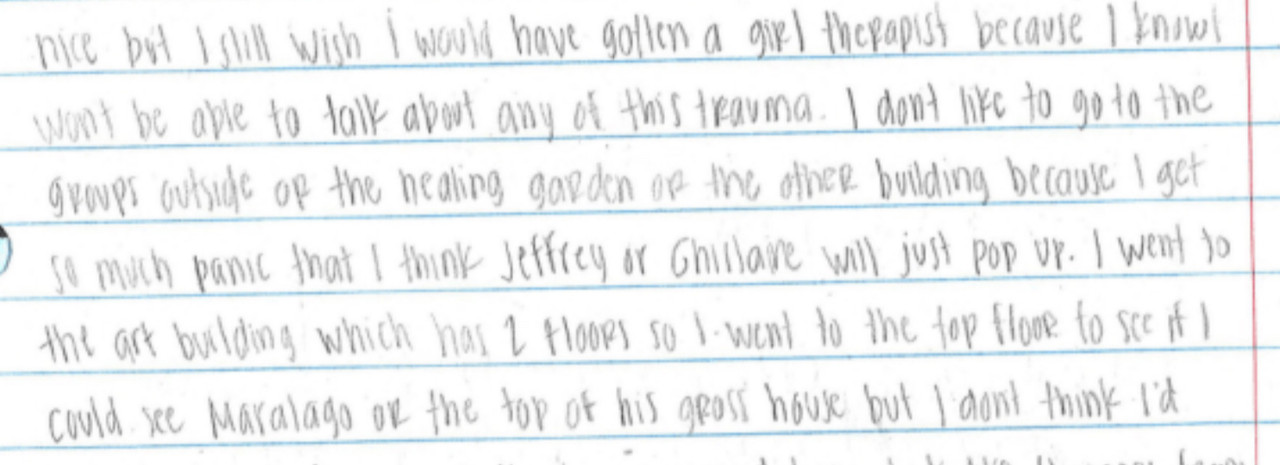 nice but I still wish I would have gotten a girl therapist because I know I
wont be able to talk about any of this trauma. I dont like to go to the
groups outside or the healing garden or the other building because I get
so much panic that I think Jeffrey or Ghislaine will just pop up. I went to
the art building which has 2 floors so I went to the top floor to see if I
could see Maralago or the top of his gross house but I dont think I'd